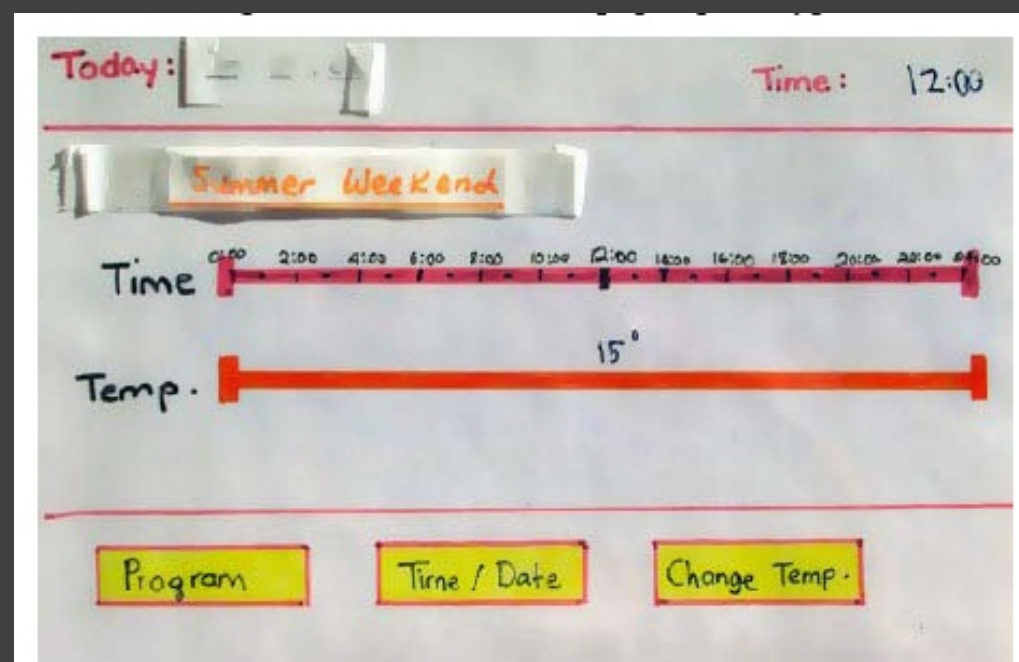 Today:
Time: 12:00
Summer Weekend
2:00 4:00 6:00 8:00 10:00 12:00 14:00 16:00 18:00 20:00
Time
15°
Temp.
Program Time / Date Change Temp.